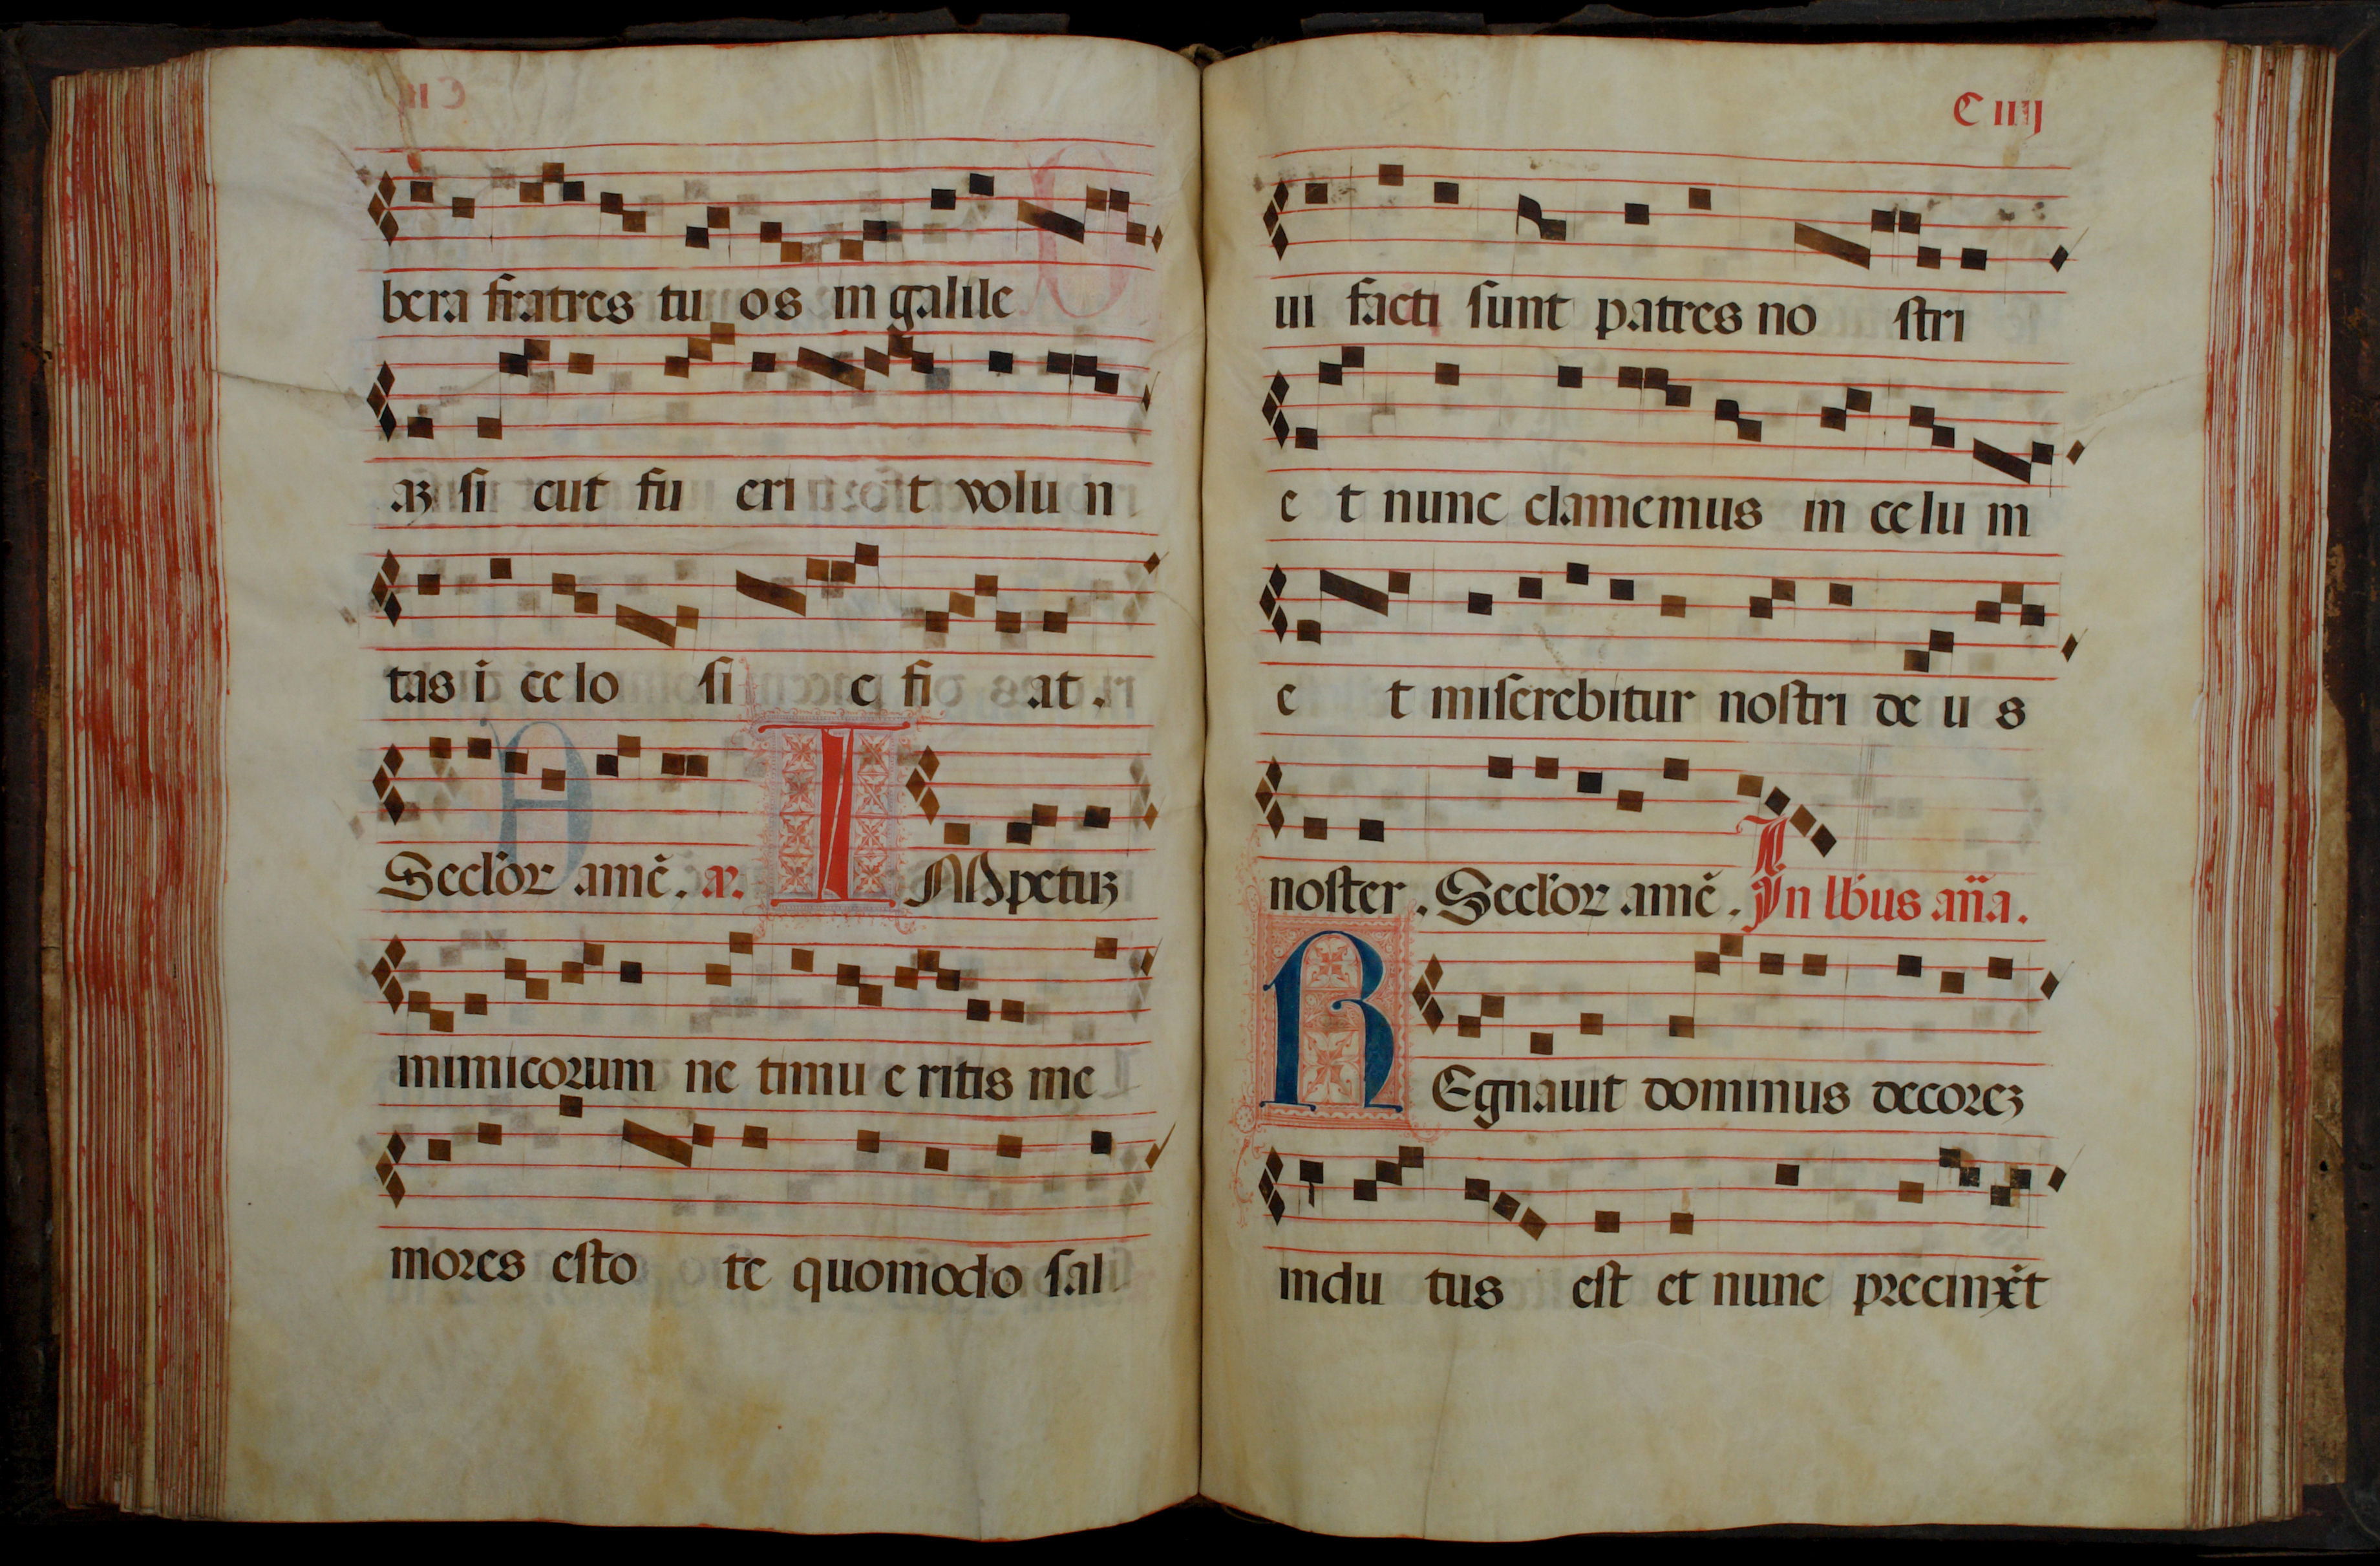 bera fratres tu os in galile
aʒ si cut fu eri t volu n
tas i ce lo si c fi at.
Seclo&#x27;ꝝ amē. aꝝ. IMpetuʒ
inimicorum ne timu e ritis me
mores esto te quomodo sal
C iiij
ui facti sunt patres no stri
e t nunc clamemus in ce lu m
e t miserebitur nostri de u s
noster. Seclo&#x27;ꝝ amē. In lbus aña.
REgnauit dominus decoreʒ
indu tus est et nunc precinxit